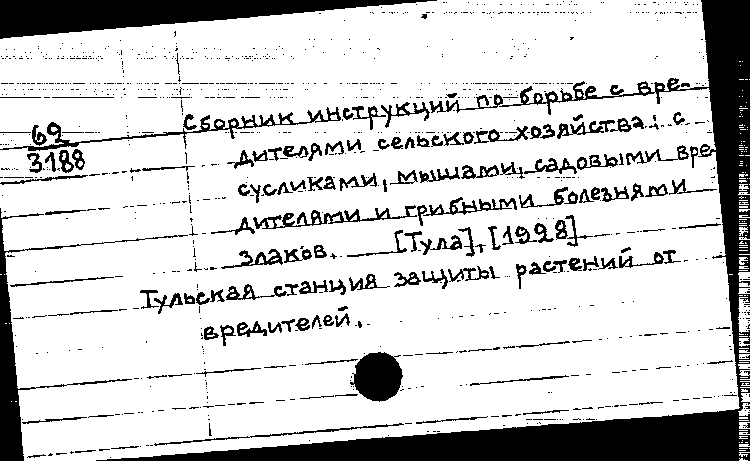 69
3188
Сборник инструкций по борьбе с вре-
дителями сельского хозяйства: с
сусликами, мышами, садовыми вре-
дителями и грибными болезнями
злаков. [Тула], [1928].
Тульская станция защиты растений от
вредителей.